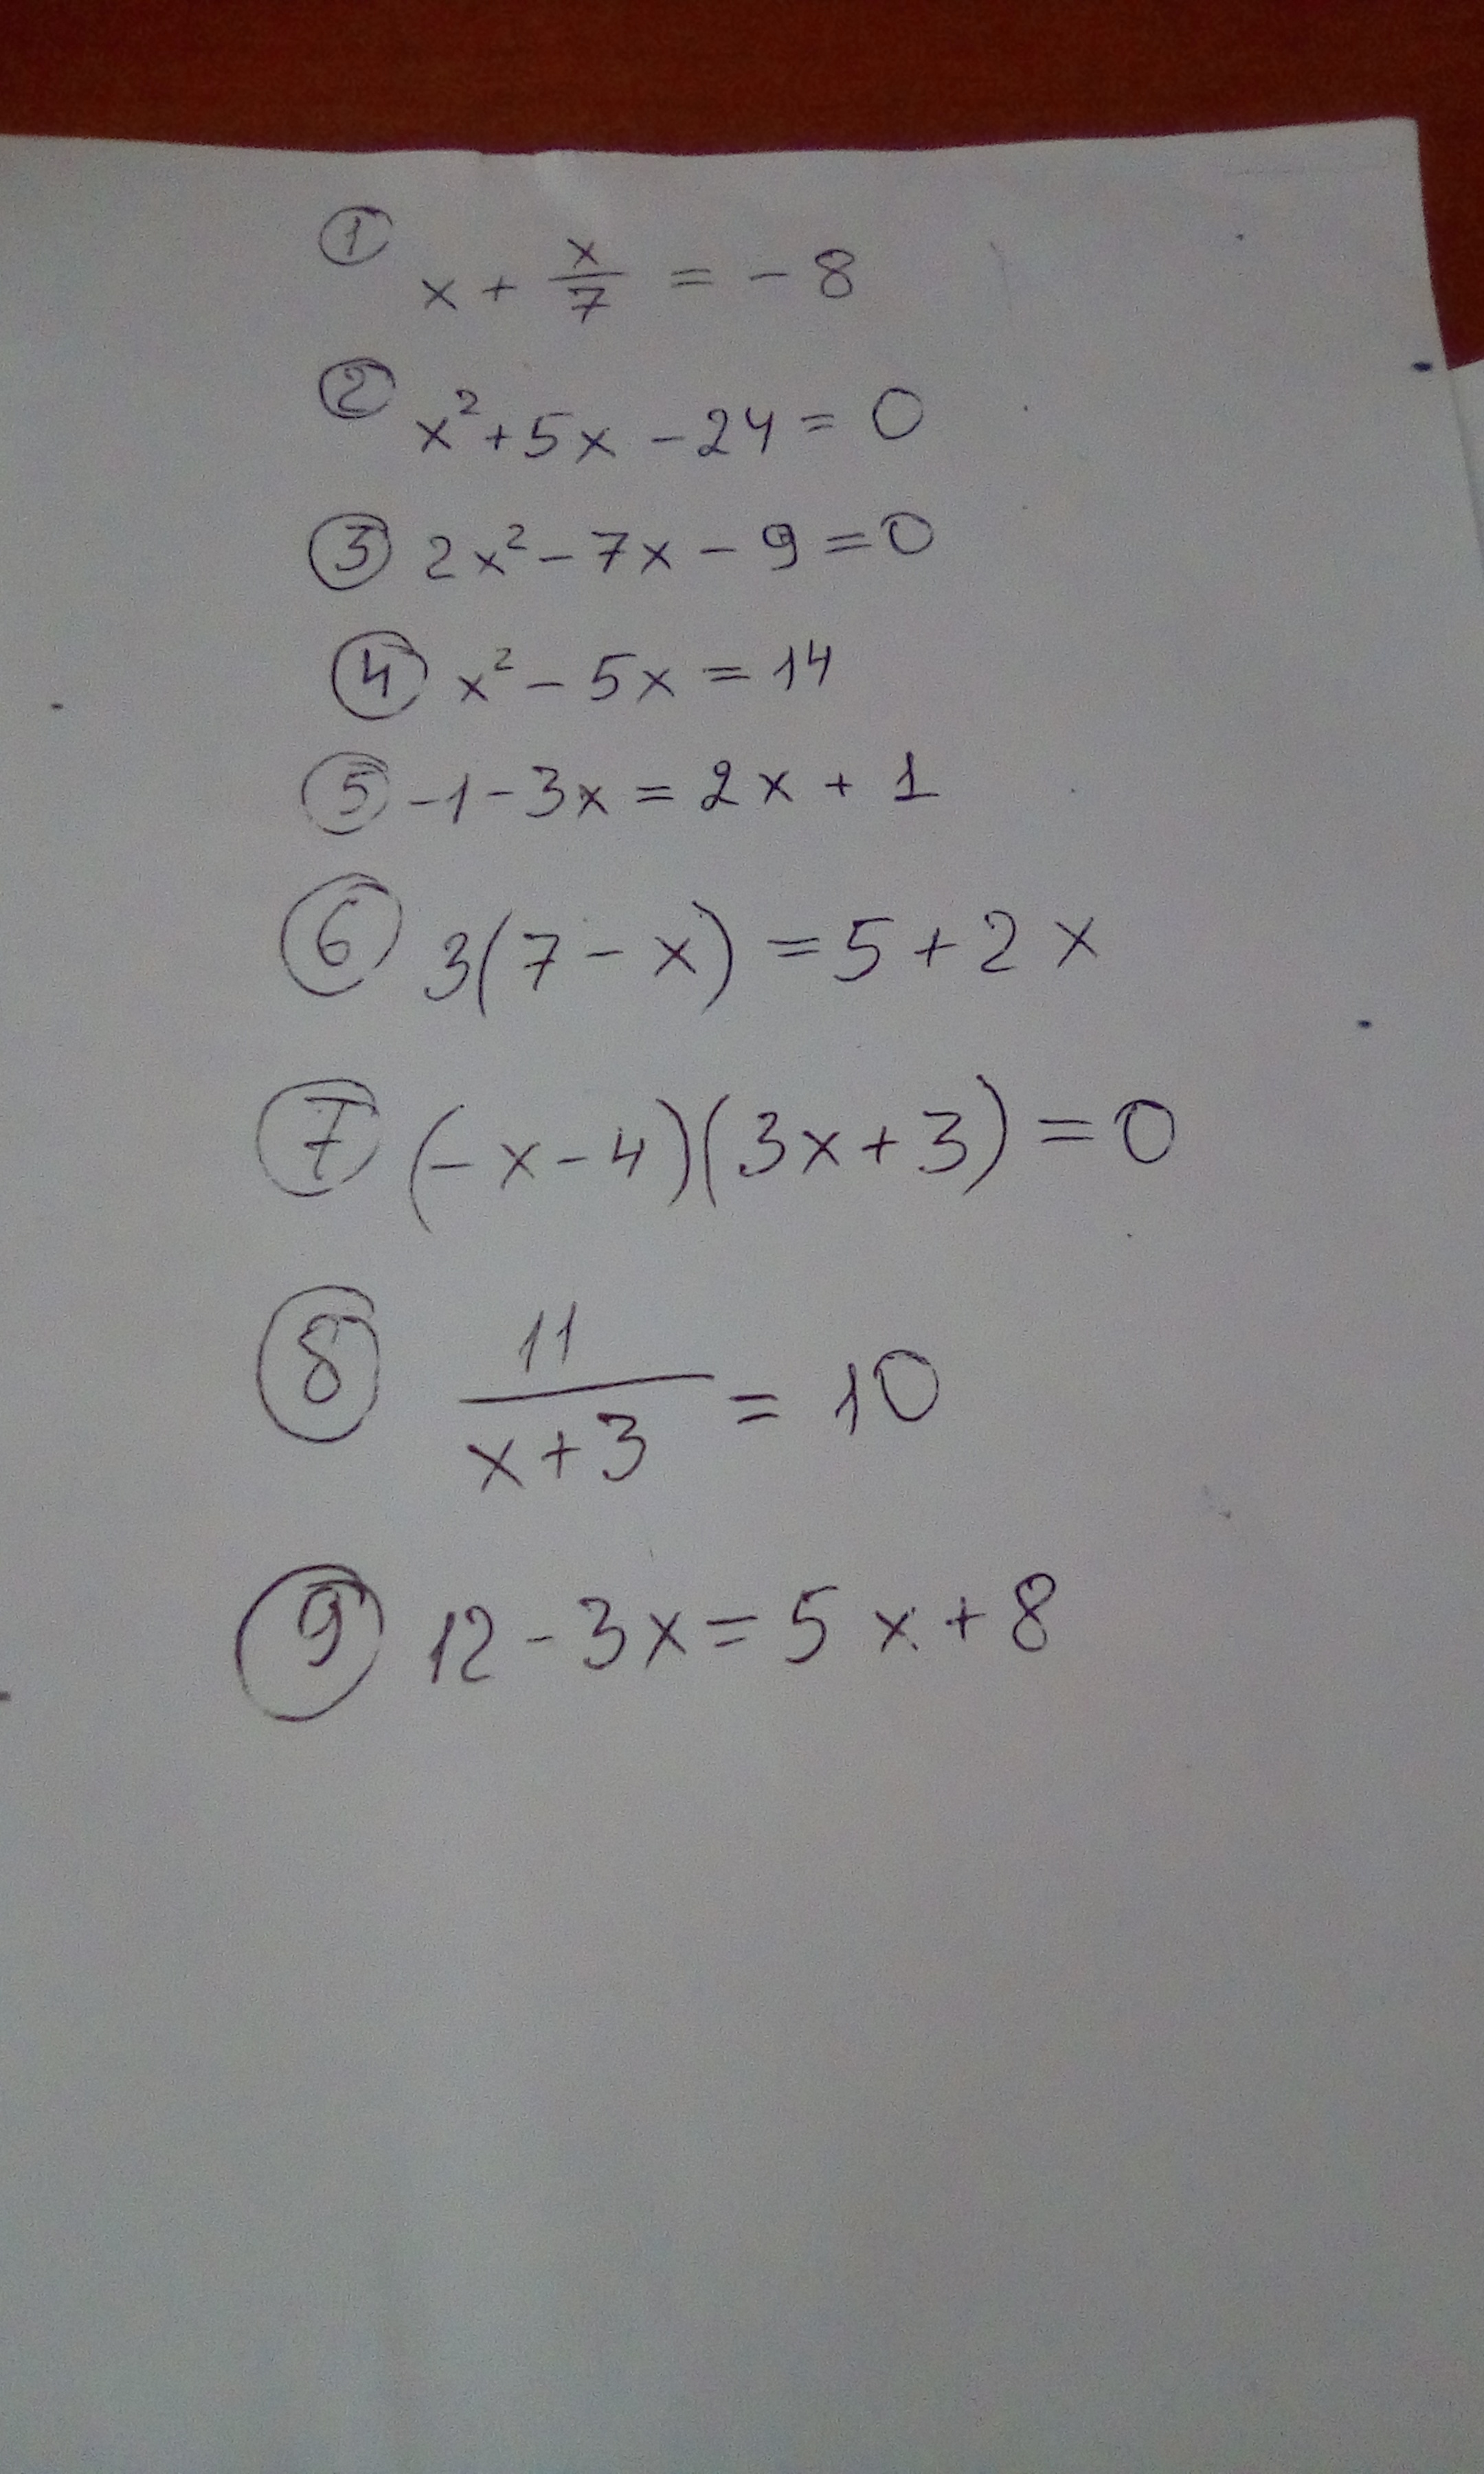 ① x + x/7 = - 8
② x² + 5x - 24 = 0
③ 2x² - 7x - 9 = 0
④ x² - 5x = 14
⑤ -1 - 3x = 2x + 1
⑥ 3(7 - x) = 5 + 2x
⑦ (-x - 4)(3x + 3) = 0
⑧ 11/(x + 3) = 10
⑨ 12 - 3x = 5x + 8